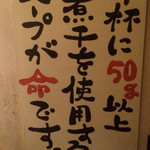 杯に50g以上
煮干を使用する
ープが命です。